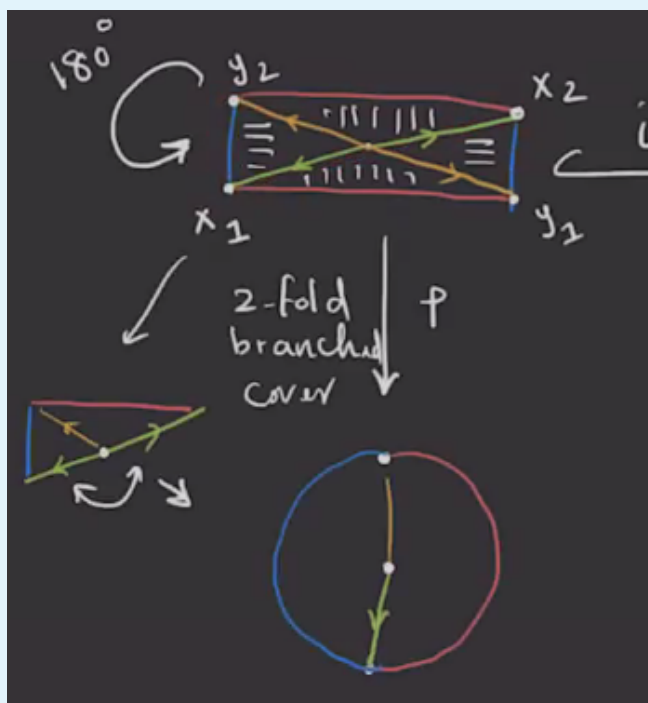 180°
y2
x2
x1
y1
2-fold
branched
cover
p